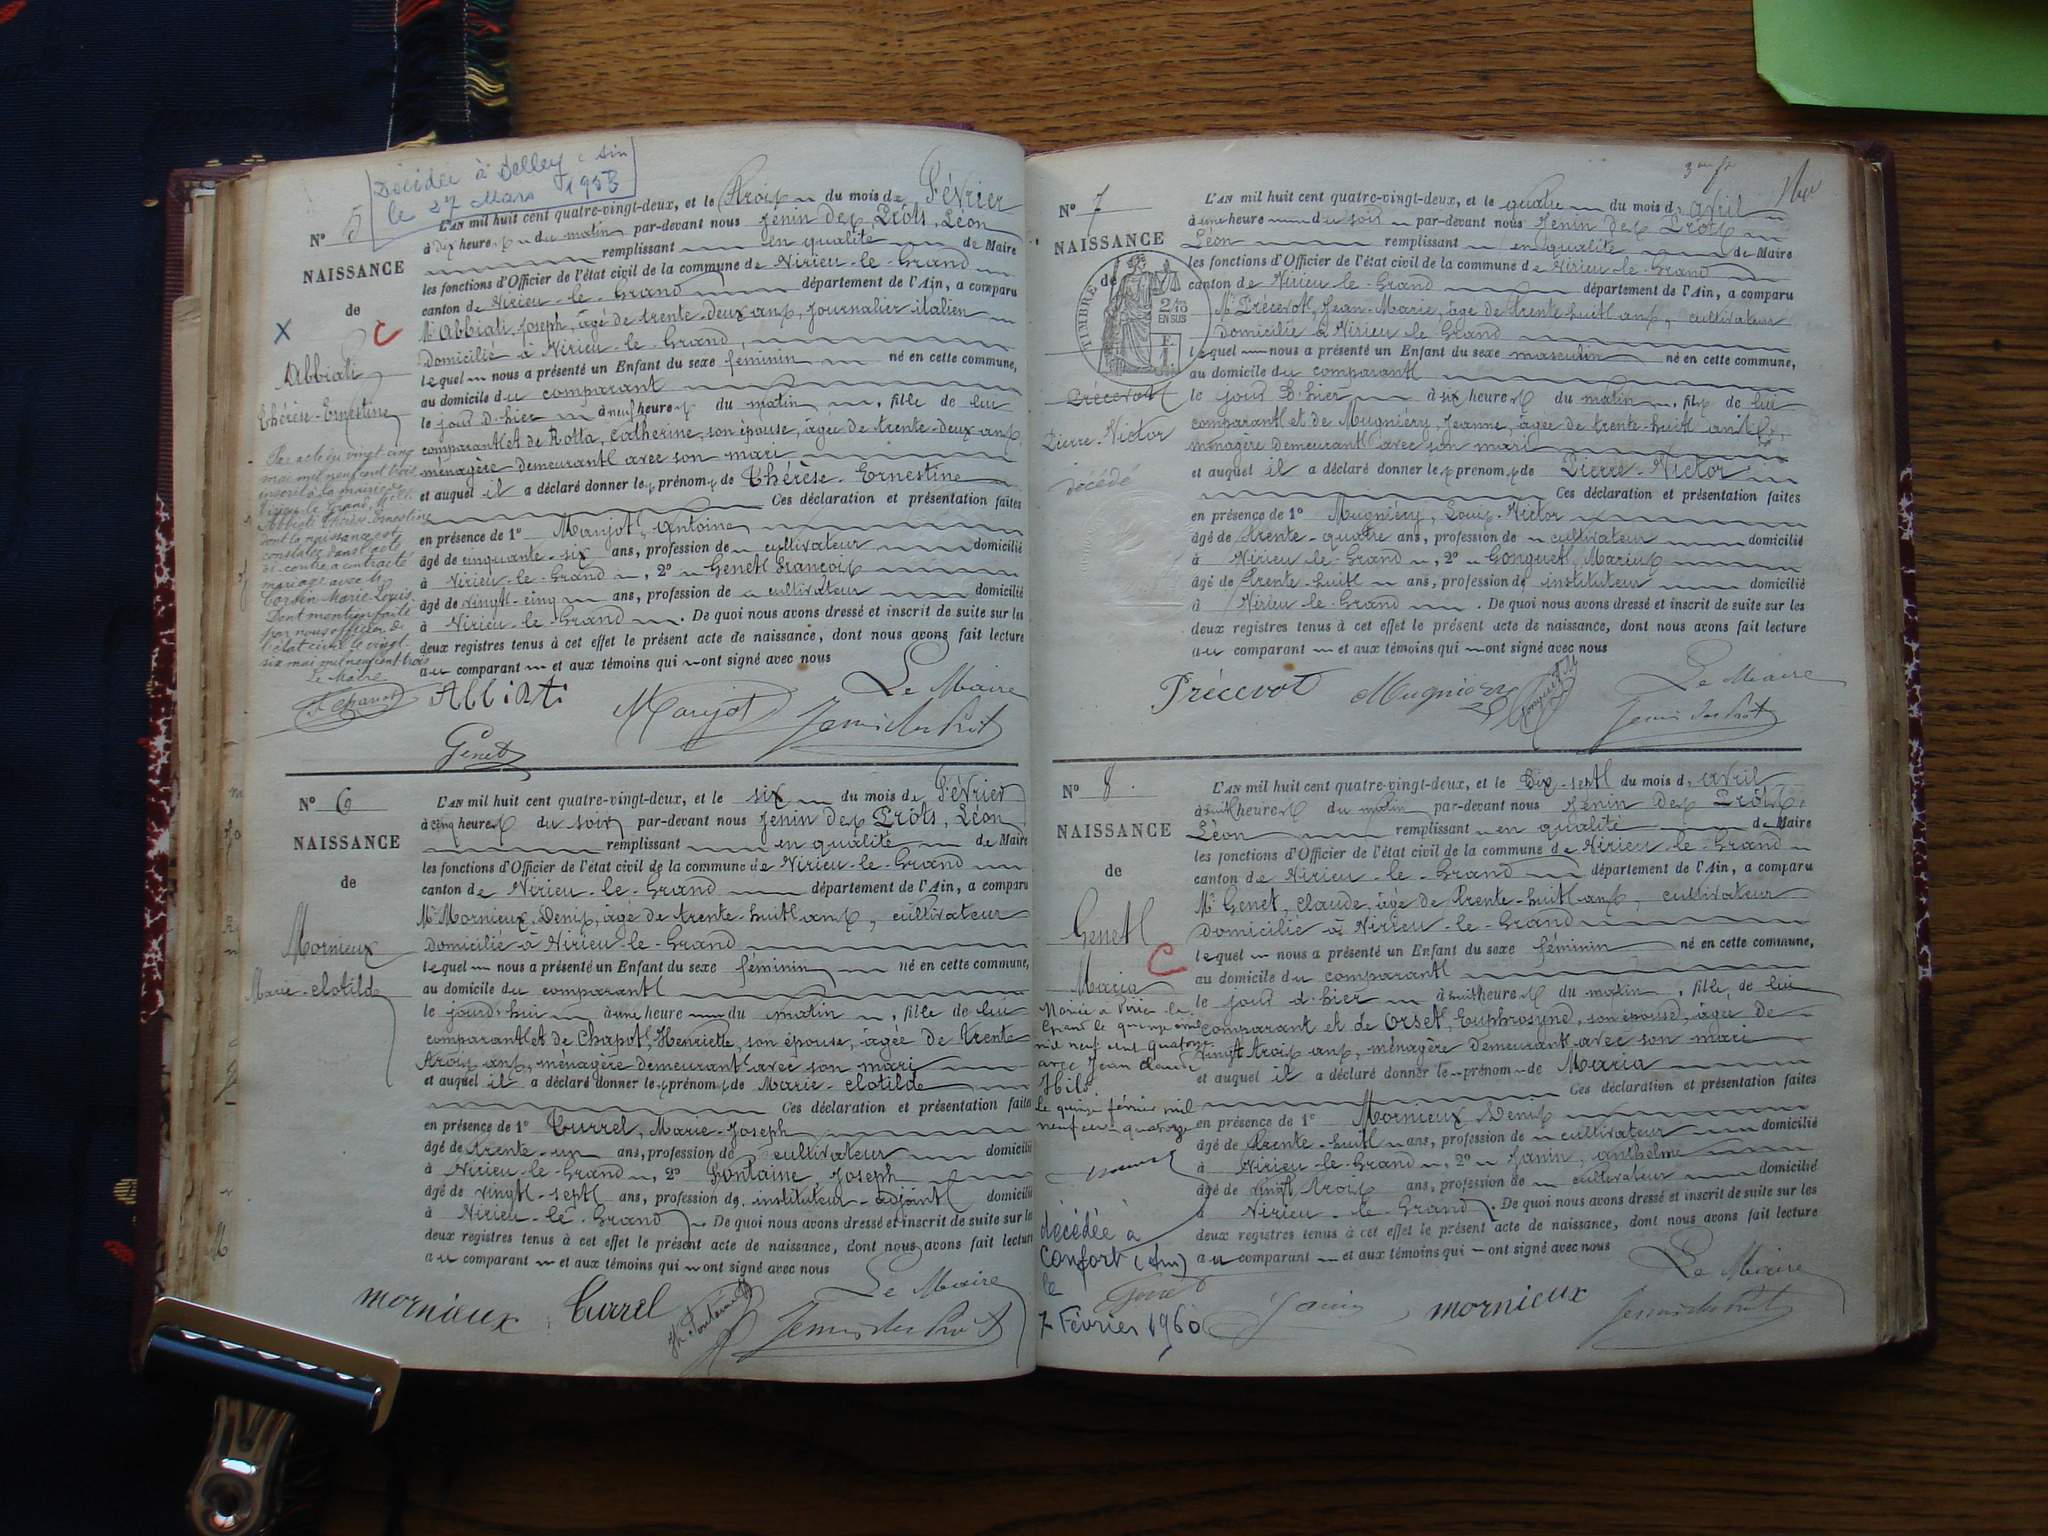 Décédée à Belley (Ain)
le 27 Mars 1953
N° 5
NAISSANCE
de
X C
Abbiati
Thérèse-Ernestine
Par acte du vingt cinq
mai mil neuf cent trois
inscrit à la mairie de
Virieu-le-Grand,
Abbiati Thérèse Ernestine
dont la naissance est
constatée dans l'acte
ci-contre a contracté
mariage avec
Corsin Marie Louis
Dont mention faite
par nous officier de
l'état civil le vingt-
six mai mil neuf cent trois
Le Maire
L'AN mil huit cent quatre-vingt-deux, et le Trois du mois de Février
à dix heures du matin par-devant nous Jenin des Prôts, Léon
remplissant en qualité de Maire
les fonctions d'Officier de l'état civil de la commune de Virieu-le-Grand
canton de Virieu-le-Grand département de l'Ain, a comparu
Mr Abbiati Joseph, âgé de trente-deux ans, journalier italien
domicilié à Virieu-le-Grand,
lequel nous a présenté un Enfant du sexe féminin né en cette commune,
au domicile du comparant
le jour d'hier à neuf heures du matin, fille de lui
comparant et de Rotta, Catherine, son épouse, âgée de trente-deux ans,
ménagère demeurant avec son mari
et auquel il a déclaré donner les prénoms de Thérèse-Ernestine
Ces déclaration et présentation faites
en présence de 1° Maujot, Antoine
âgé de cinquante-six ans, profession de cultivateur domicilié
à Virieu-le-Grand, 2° Genet François
âgé de vingt-cinq ans, profession de cultivateur domicilié
à Virieu-le-Grand. De quoi nous avons dressé et inscrit de suite sur les
deux registres tenus à cet effet le présent acte de naissance, dont nous avons fait lecture
au comparant et aux témoins qui ont signé avec nous
Le Maire
Abbiati Maujot Jenin des Prôts
Genet
N° 6
NAISSANCE
de
Mornieux
Marie-Clotilde
L'AN mil huit cent quatre-vingt-deux, et le six du mois de Février
à cinq heures du soir par-devant nous Jenin des Prôts, Léon
remplissant en qualité de Maire
les fonctions d'Officier de l'état civil de la commune de Virieu-le-Grand
canton de Virieu-le-Grand département de l'Ain, a comparu
Mr Mornieux Denis, âgé de trente-huit ans, cultivateur
domicilié à Virieu-le-Grand
lequel nous a présenté un Enfant du sexe féminin né en cette commune,
au domicile du comparant
le jourd'hui à une heure du matin, fille de lui
comparant et de Chapot, Henriette, son épouse, âgée de trente
trois ans, ménagère demeurant avec son mari
et auquel il a déclaré donner les prénoms de Marie-Clotilde
Ces déclaration et présentation faites
en présence de 1° Turrel, Marie-Joseph
âgé de trente-un ans, profession de cultivateur domicilié
à Virieu-le-Grand, 2° Fontaine, Joseph
âgé de vingt-sept ans, profession de instituteur-adjoint domicilié
à Virieu-le-Grand. De quoi nous avons dressé et inscrit de suite sur les
deux registres tenus à cet effet le présent acte de naissance, dont nous avons fait lecture
au comparant et aux témoins qui ont signé avec nous
Le Maire
mornieux Turrel Jh Fontaine Jenin des Prôts
3me fe
N° 7
NAISSANCE
de
TIMBRE
2/10 EN SUS
Précevot
Pierre-Victor
décédé
L'AN mil huit cent quatre-vingt-deux, et le quatre du mois d'avril
à une heure du soir par-devant nous Jenin des Prôts
Léon remplissant en qualité de Maire
les fonctions d'Officier de l'état civil de la commune de Virieu-le-Grand
canton de Virieu-le-Grand département de l'Ain, a comparu
Mr Précevot, Jean-Marie, âgé de trente-huit ans, cultivateur
domicilié à Virieu-le-Grand
lequel nous a présenté un Enfant du sexe masculin né en cette commune,
au domicile du comparant
le jour d'hier à six heures du matin, fils de lui
comparant et de Mugniéry, Jeanne, âgée de trente-huit ans,
ménagère demeurant avec son mari
et auquel il a déclaré donner les prénoms de Pierre-Victor
Ces déclaration et présentation faites
en présence de 1° Mugniéry, Louis-Victor
âgé de trente-quatre ans, profession de cultivateur domicilié
à Virieu-le-Grand, 2° Gonguet, Marius
âgé de trente-huit ans, profession de instituteur domicilié
à Virieu-le-Grand. De quoi nous avons dressé et inscrit de suite sur les
deux registres tenus à cet effet le présent acte de naissance, dont nous avons fait lecture
au comparant et aux témoins qui ont signé avec nous
Le Maire
Précevot Mugniéry Jenin des Prôts
N° 8
NAISSANCE
de
Genet
C
Maria
Mariée à Virieu-le-
Grand le quinze
mil neuf cent quatorze
avec Jean Claude
Hil
Le quinze février mil
neuf cent quatorze
décédée à
Confort (Ain)
le
7 Février 1960
L'AN mil huit cent quatre-vingt-deux, et le dix-sept du mois d'avril
à huit heures du matin par-devant nous Jenin des Prôts,
Léon remplissant en qualité de Maire
les fonctions d'Officier de l'état civil de la commune de Virieu-le-Grand
canton de Virieu-le-Grand département de l'Ain, a comparu
Mr Genet, Claude, âgé de trente-huit ans, cultivateur
domicilié à Virieu-le-Grand
lequel nous a présenté un Enfant du sexe féminin né en cette commune,
au domicile du comparant
le jour d'hier à huit heures du matin, fille de lui
comparant et de Orset, Euphrosyne, son épouse, âgée de
vingt trois ans, ménagère demeurant avec son mari
et auquel il a déclaré donner le prénom de Maria
Ces déclaration et présentation faites
en présence de 1° Mornieux Denis
âgé de trente-huit ans, profession de cultivateur domicilié
à Virieu-le-Grand, 2° Janin, Anthelme
âgé de vingt trois ans, profession de cultivateur domicilié
à Virieu-le-Grand. De quoi nous avons dressé et inscrit de suite sur les
deux registres tenus à cet effet le présent acte de naissance, dont nous avons fait lecture
au comparant et aux témoins qui ont signé avec nous
Le Maire
Genet Janin mornieux Jenin des Prôts